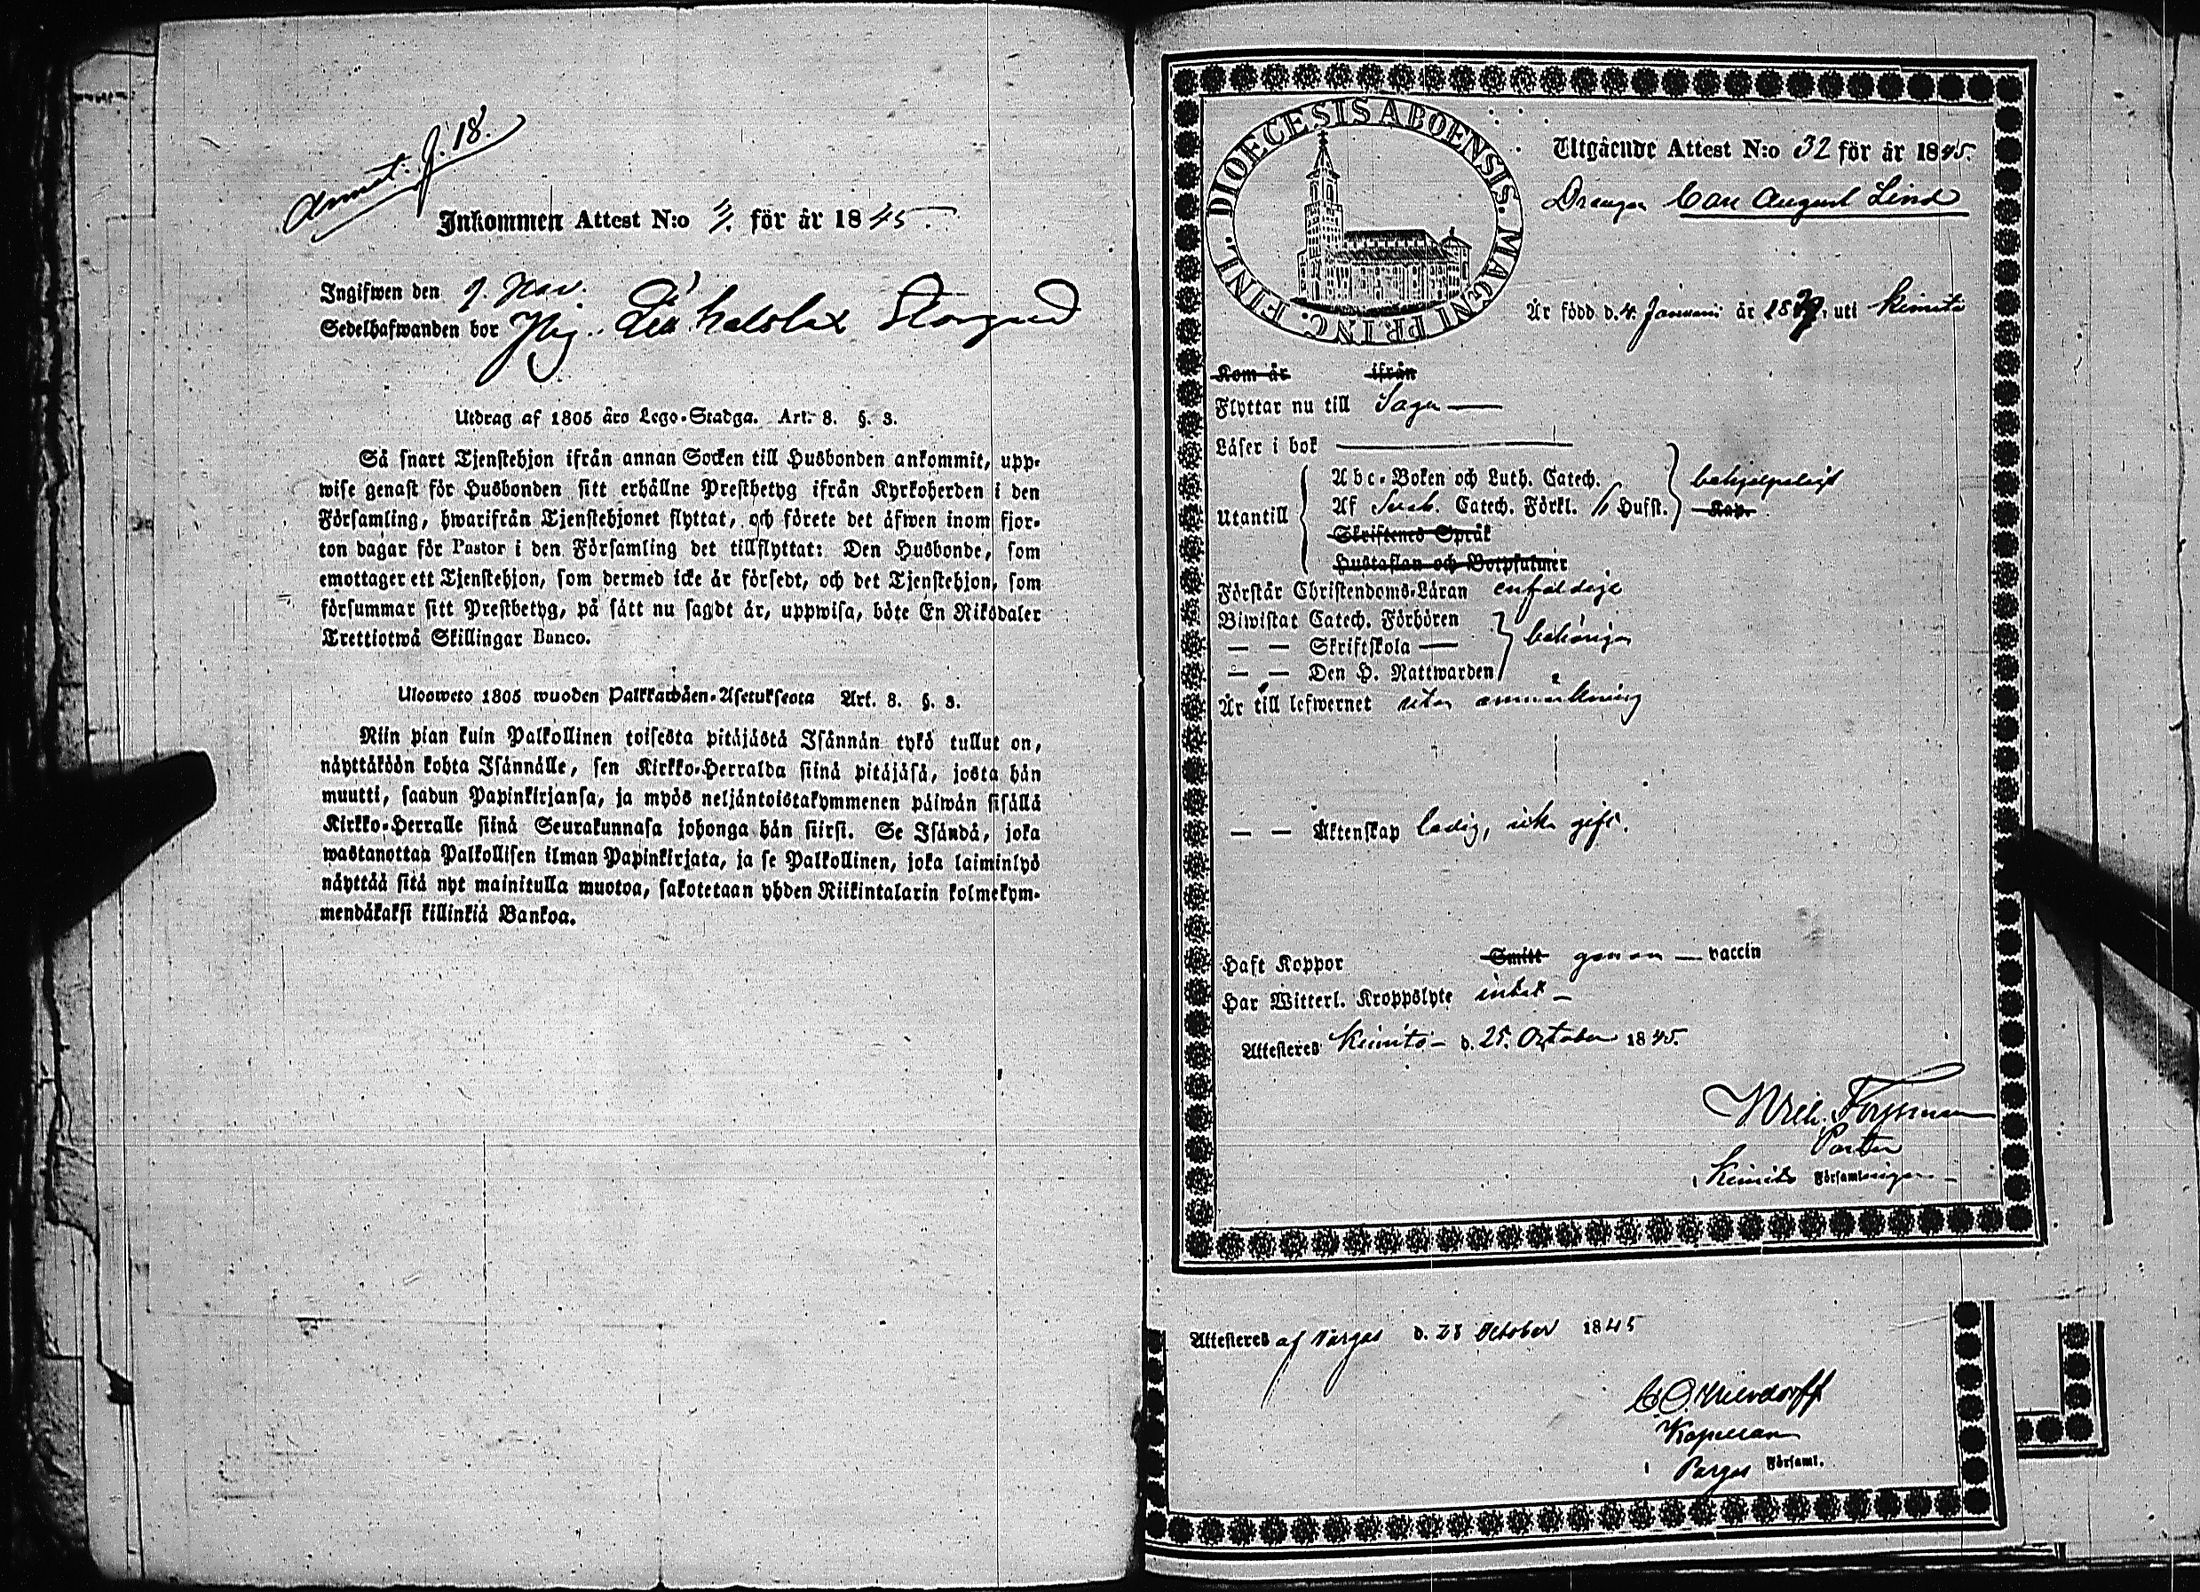 g. 18.
Inkommen Attest N:o för år 1845.
Ingifwen den 9. Nov.
Sedelhafwanden bor Storgård
Utdrag af 1805 åro Lego-Stadga. Art. 8. §. 3.
Så snart Tjenstehjon ifrån annan Socken till Husbonden ankommit, upp-
wise genast för Husbonden sitt erhållne Prestbetyg ifrån Kyrkoherden i den
Församling, hwarifrån Tjenstehjonet flyttat, och förete det äfwen inom fjor-
ton dagar för Pastor i den Församling det tillflyttat: Den Husbonde, som
emottager ett Tjenstehjon, som dermed icke är försedt, och det Tjenstehjon, som
försummar sitt Prestbetyg, på sätt nu sagdt är, uppwisa, böte En Riksdaler
Trettiotwå Skillingar Banco.
Ulosweto 1805 wuoden Palkkawäen-Asetuksesta Art. 8. §. 3.
Niin pian kuin Palkollinen toisesta pitäjästä Isännän tykö tullut on,
näyttäköön kohta Isännälle, sen Kirkko-Herralda siinä pitäjäsä, josta hän
muutti, saadun Papinkirjansa, ja myös neljäntoistakymmenen päiwän sisällä
Kirkko-Herralle siinä Seurakunnasa johonga hän siirsi. Se Isändä, joka
wastanottaa Palkollisen ilman Papinkirjata, ja se Palkollinen, joka laiminlyö
näyttää sitä nyt mainitulla muotoa, sakotetaan yhden Riikintalarin kolmekym-
mendäkaksi killinkiä Bankoa.
DIOECESIS ABOENSIS. MAGNI PRINC. FINL.
Utgående Attest N:o 32 för år 1845.
Drengen Carl August Lind
Är född d. 4. Januari år 18 uti Kimito
Kom år ifrån
Flyttar nu till Sagu
Läser i bok
Utantill
Abc-Boken och Luth. Catech.
Af Sveb. Catech. Förkl. Hufst.
behjelpeligt
Kap.
Skriftenes Språk
Hustaflan och Botpsalmer
Förstår Christendoms-Läran enfaldige
Biwistat Catech. Förhören
— — Skriftskola
— — Den H. Nattwarden
behörigen
Är till lefwernet utan anmärkning
— — Äktenskap ledig, icke gift.
Haft Koppor Smitt genom vaccin
Har Witterl. Kroppslyte intet
Attesteres Kimito d. 25. October 1845.
Wilh. Forssman
Pastor
i Kimito Församlingen
Attesteres af Pargas d. 28 October 1845
Kapellan
i Pargas Församl.